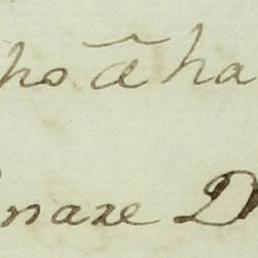 ho ã ha
naxe D